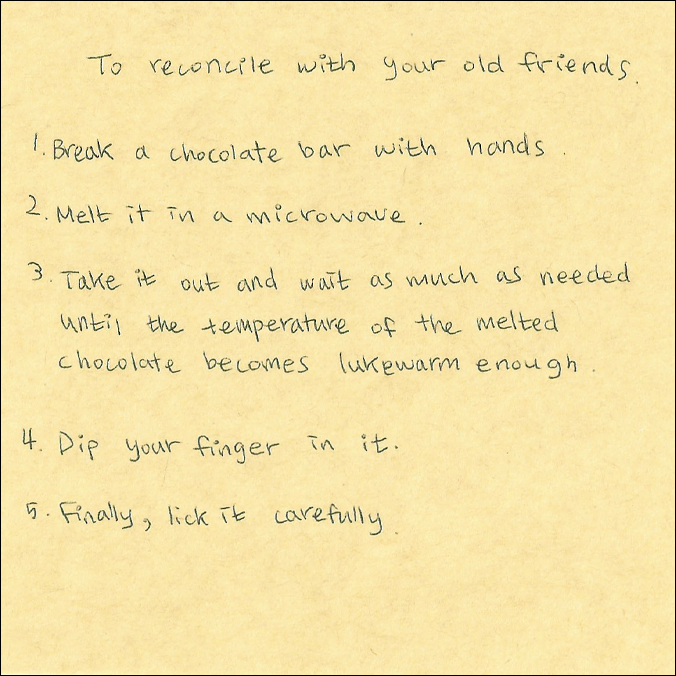 To reconcile with your old friends.
1. Break a chocolate bar with hands.
2. Melt it in a microwave.
3. Take it out and wait as much as needed
until the temperature of the melted
chocolate becomes lukewarm enough.
4. Dip your finger in it.
5. Finally, lick it carefully.